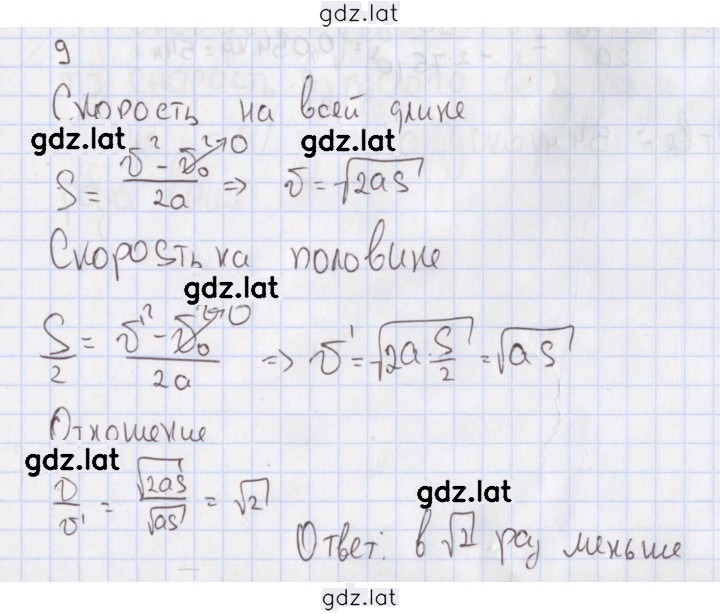 gdz.lat
9
Скорость на всей длине
gdz.lat gdz.lat
S = (v² - v₀²→0)/2a => v = √2aS
Скорость на половине
gdz.lat
S/2 = (v'² - v₀²→0)/2a => v' = √2a S/2 = √aS
Отношение
gdz.lat
v/v' = √2aS/√aS = √2
gdz.lat
Ответ: в √2 раз меньше
gdz.lat